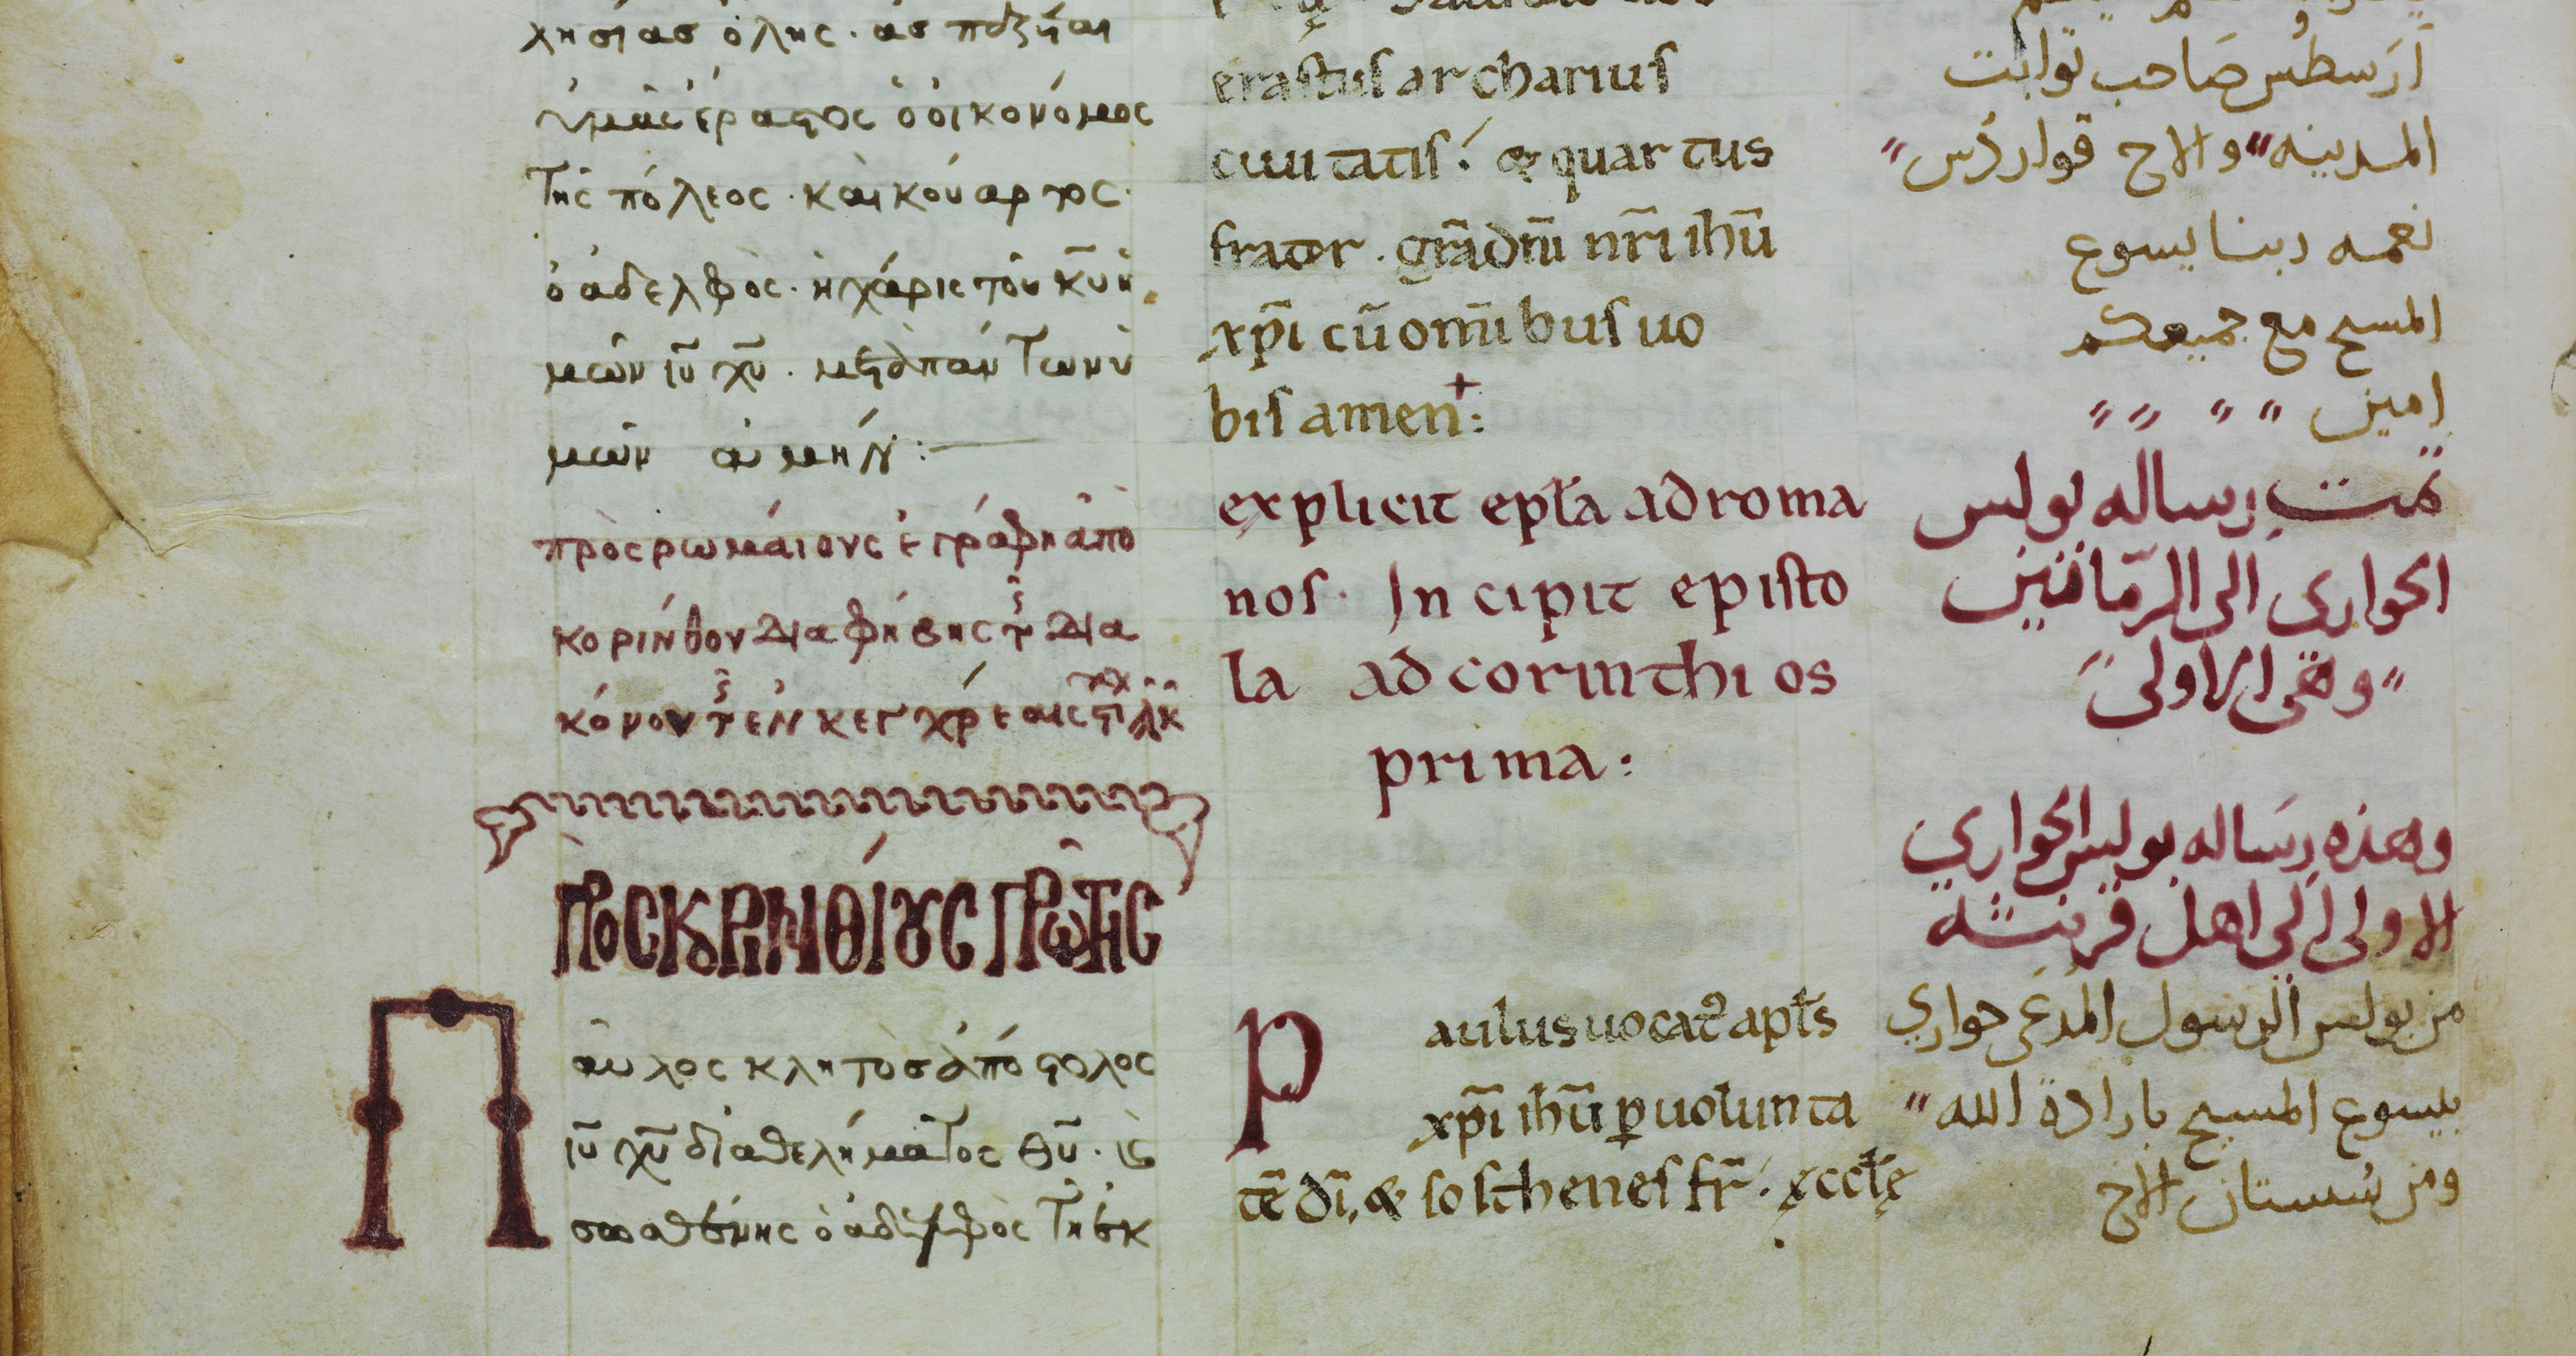 χησίας ὅλης · ἀσπάζεται
ὑμᾶς ἔραστος ὁ οἰκονόμος
τῆς πόλεος · καὶ κούαρτος ·
ὁ ἀδελφὸς · ἡ χάρις τοῦ κ̅υ̅ ἡ
μῶν ι̅υ̅ χ̅υ̅ · μετὰ πάντων ὑ
μῶν ἀμήν :
πρὸς ρωμαίους ἐγράφη ἀπὸ
κορίνθου διὰ φήβης τ̑ δια
κόνου τ̑ ἐν κεγχρέαις
ΠΡΟϹ ΚΟΡΙΝΘΙΟΥϹ ΠΡΩΤΗϹ
Παῦλος κλητὸς ἀπόστολος
ι̅υ̅ χ̅υ̅ διὰ θελήματος θ̅υ̅ · κ̀
σωσθένης ὁ ἀδελφὸς τῆ ἐκ
erastus archarius
ciuitatis · & quartus
frater · gr̅a dn̅i nr̅i ihu̅
xp̅i cu̅ omnibus uo
bis amen :
explicit epl̅a ad roma
nos · Incipit episto
la ad corinthios
prima :
Paulus uocat᷑ apl̅s
xp̅i ihu̅ p̲ uolunta
te̅ di̅, & sosthenes fr̅ · ęccl̅ę
اَرَسطُس صَاحب توابت
المدينه و الاخ قوارطس
نعمه ربنا يسوع
المسيح مع جميعكم
امين
تمت رساله بولس
الحوارى الى الرمانيين
وهى الاولى
وهذه رسَاله بولس الحواري
الاولى الى اهل قرنثيه
من بولس الرسول المُدعَى حواري
بيسوع المسيح بارادة الله
ومن سُستان الاخ